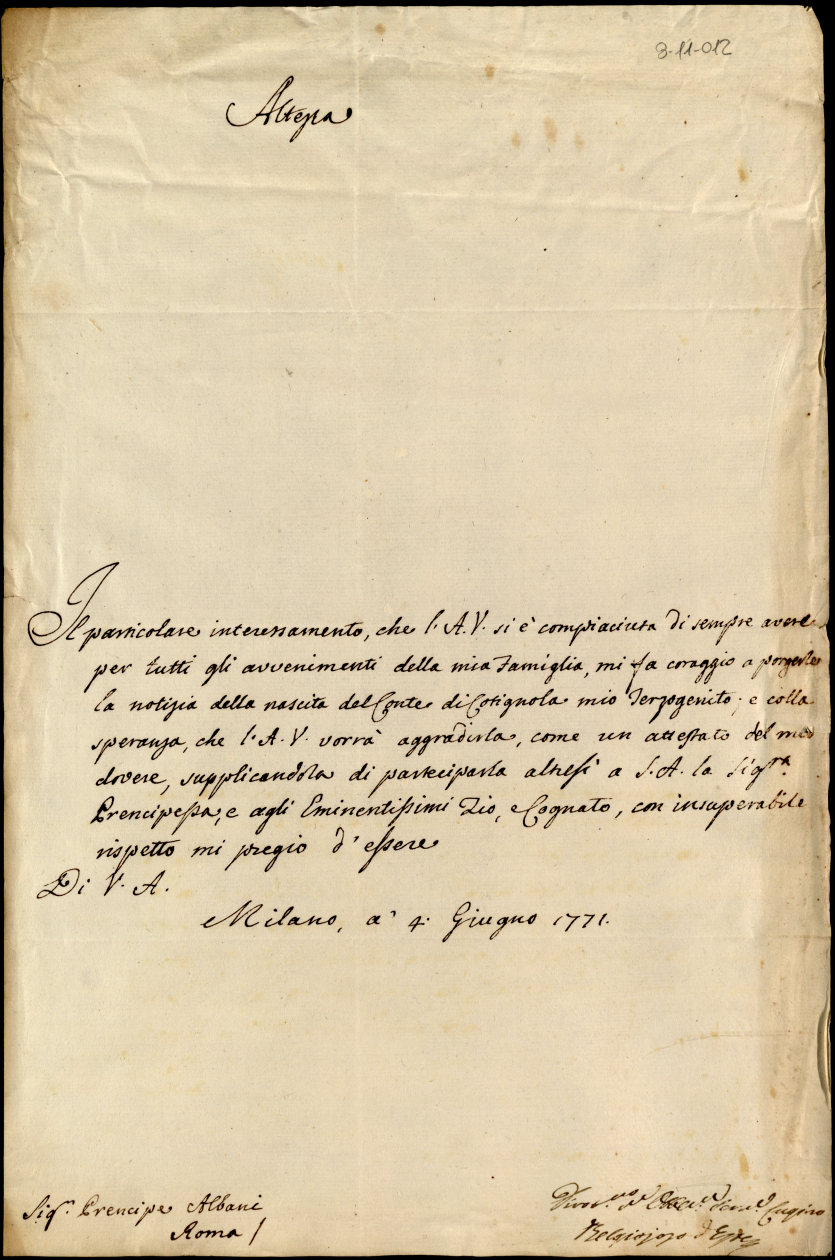 8-11-012
Altezza
Il particolare interessamento, che l'A.V. si è compiaciuta di sempre avere
per tutti gli avvenimenti della mia Famiglia, mi fa coraggio a porgerle
la notizia della nascita del Conte di Cotignola mio Terzogenito; e colla
speranza, che l'A.V. vorrà aggradirla, come un attestato del mio
dovere, supplicandola di parteciparla altresì a S.A. la Sigra.
Prencipessa, e agli Eminentissimi Zio, e Cognato, con insuperabile
rispetto mi pregio d'essere
Di V. A.
Milano, a' 4. Giugno 1771.
Sigr. Prencipe Albani
Roma /
Cugino
Belgiojoso d'Este